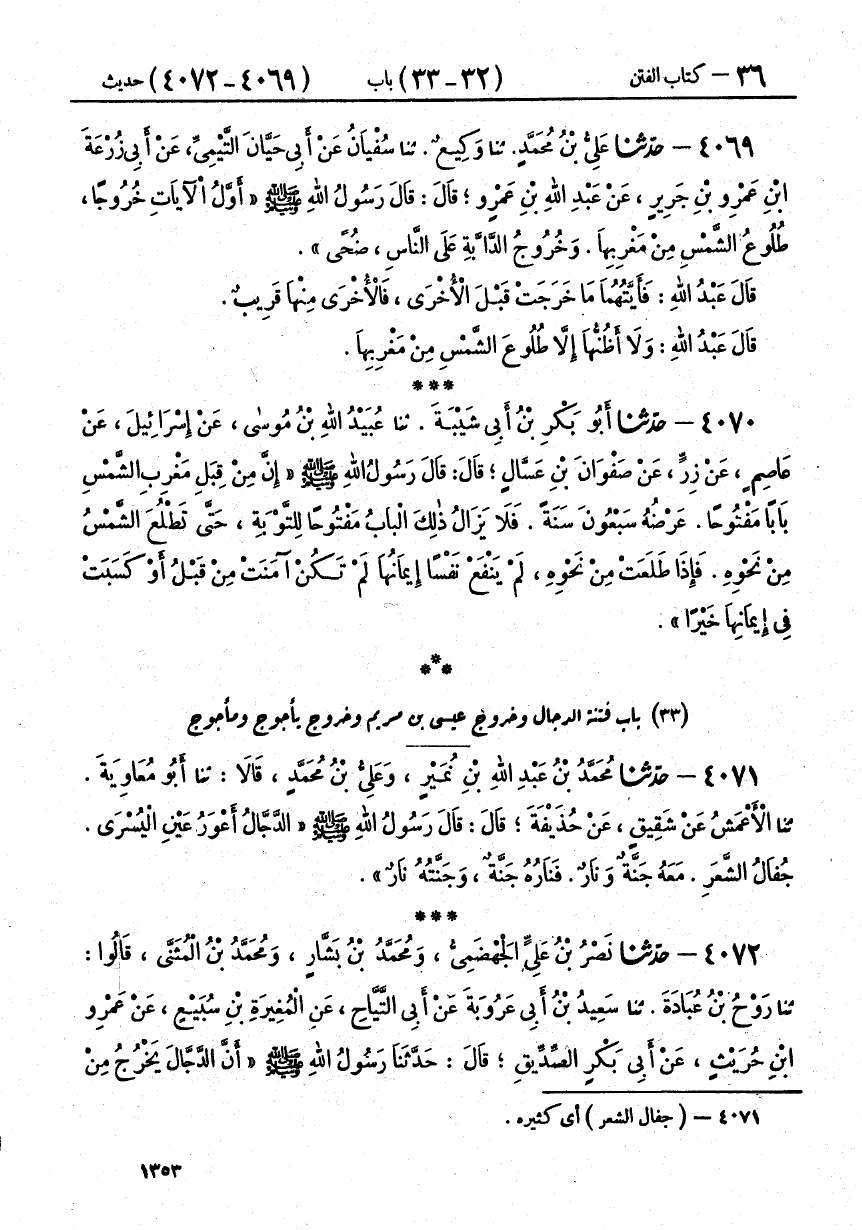 ٣٦ – كتاب الفتن (٣٢ – ٣٣) باب (٤٠٦٩ – ٤٠٧٢) حديث
٤٠٦٩ – حدّثنا عَلِيُّ بْنُ مُحَمَّدٍ. ثنا وَكِيعٌ. ثنا سُفْيَانُ عَنْ أَبِي حَيَّانَ التَّيْمِيِّ، عَنْ أَبِي زُرْعَةَ
ابْنِ عَمْرِو بْنِ جَرِيرٍ، عَنْ عَبْدِ اللهِ بْنِ عَمْرٍو؛ قَالَ: قَالَ رَسُولُ اللهِ ﷺ «أَوَّلُ الْآيَاتِ خُرُوجًا،
طُلُوعُ الشَّمْسِ مِنْ مَغْرِبِهَا. وَخُرُوجُ الدَّابَّةِ عَلَى النَّاسِ، ضُحًى».
قَالَ عَبْدُ اللهِ: فَأَيَّتُهُمَا مَا خَرَجَتْ قَبْلَ الْأُخْرَى، فَالْأُخْرَى مِنْهَا قَرِيبٌ.
قَالَ عَبْدُ اللهِ: وَلَا أَظُنُّهَا إِلَّا طُلُوعَ الشَّمْسِ مِنْ مَغْرِبِهَا.
***
٤٠٧٠ – حدّثنا أَبُو بَكْرِ بْنُ أَبِي شَيْبَةَ. ثنا عُبَيْدُ اللهِ بْنُ مُوسٰى، عَنْ إِسْرَائِيلَ، عَنْ
عَاصِمٍ، عَنْ زِرٍّ، عَنْ صَفْوَانَ بْنِ عَسَّالٍ؛ قَالَ: قَالَ رَسُولُ اللهِ ﷺ «إِنَّ مِنْ قِبَلِ مَغْرِبِ الشَّمْسِ
بَابًا مَفْتُوحًا. عَرْضُهُ سَبْعُونَ سَنَةً. فَلَا يَزَالُ ذٰلِكَ الْبَابُ مَفْتُوحًا لِلتَّوْبَةِ، حَتَّى تَطْلُعَ الشَّمْسُ
مِنْ نَحْوِهِ. فَإِذَا طَلَعَتْ مِنْ نَحْوِهِ، لَمْ يَنْفَعْ نَفْسًا إِيمَانُهَا لَمْ تَكُنْ آمَنَتْ مِنْ قَبْلُ أَوْ كَسَبَتْ
فِي إِيمَانِهَا خَيْرًا».
***
(٣٣) باب فتنة الدجال وخروج عيسى بن مريم وخروج يأجوج ومأجوج
٤٠٧١ – حدّثنا مُحَمَّدُ بْنُ عَبْدِ اللهِ بْنِ نُمَيْرٍ، وَعَلِيُّ بْنُ مُحَمَّدٍ، قَالَا: ثنا أَبُو مُعَاوِيَةَ.
ثنا الْأَعْمَشُ عَنْ شَقِيقٍ، عَنْ حُذَيْفَةَ؛ قَالَ: قَالَ رَسُولُ اللهِ ﷺ «الدَّجَّالُ أَعْوَرُ عَيْنِ الْيُسْرَى.
جُفَالُ الشَّعَرِ. مَعَهُ جَنَّةٌ وَنَارٌ. فَنَارُهُ جَنَّةٌ، وَجَنَّتُهُ نَارٌ».
***
٤٠٧٢ – حدّثنا نَصْرُ بْنُ عَلِيٍّ الْجَهْضَمِيُّ، وَمُحَمَّدُ بْنُ بَشَّارٍ، وَمُحَمَّدُ بْنُ الْمُثَنَّى، قَالُوا:
ثنا رَوْحُ بْنُ عُبَادَةَ. ثنا سَعِيدُ بْنُ أَبِي عَرُوبَةَ عَنْ أَبِي التَّيَّاحِ، عَنِ الْمُغِيرَةِ بْنِ سُبَيْعٍ، عَنْ عَمْرِو
ابْنِ حُرَيْثٍ، عَنْ أَبِي بَكْرٍ الصِّدِّيقِ؛ قَالَ: حَدَّثَنَا رَسُولُ اللهِ ﷺ «أَنَّ الدَّجَّالَ يَخْرُجُ مِنْ
٤٠٧١ – (جفال الشعر) أى كثيره.
١٣٥٣